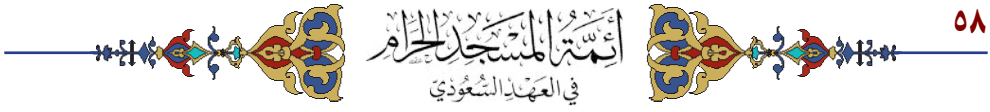 ٥٨
أَئِمَّةُ المَسْجِدِ الحَرَامِ
في العَهْدِ السُّعُودِيّ